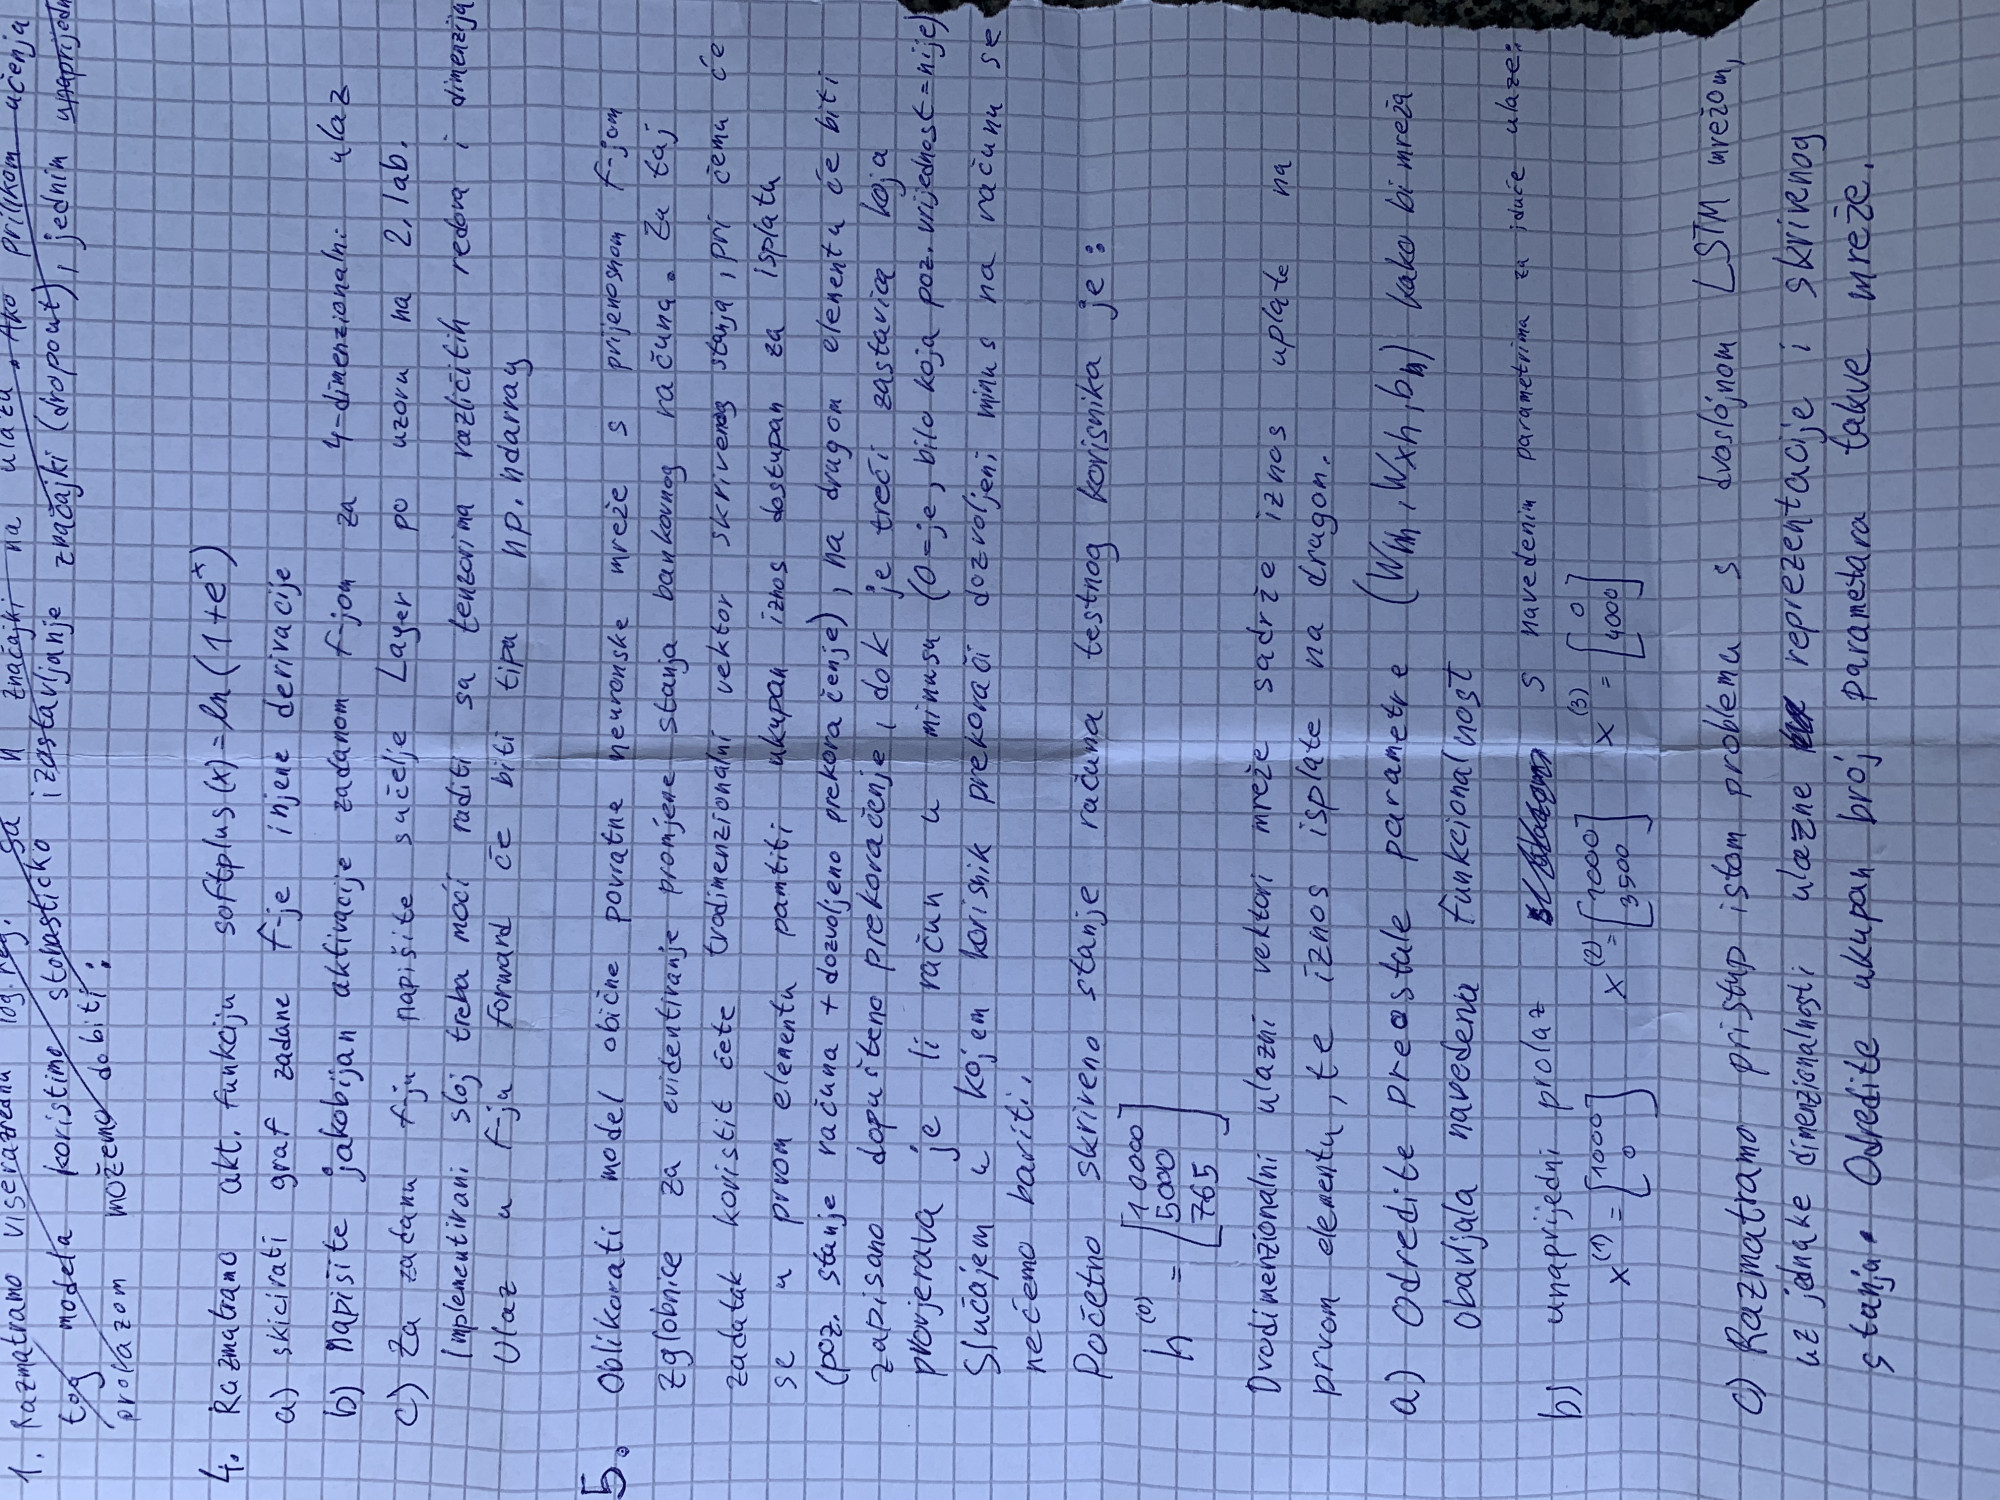 1. Razmatramo višerazrednu log. reg. sa n značajki na ulazu. Ako prilikom učenja
tog modela koristimo stohastičko izostavljanje značajki (dropout), jednim unaprijedn
prolazom možemo dobiti:
4. Razmatramo akt. funkciju softplus(x)=ln(1+eˣ)
a) skicirati graf zadane f-je i njene derivacije
b) Napišite jakobijan aktivacije zadanom f-jom za 4-dimenzionalni ulaz
c) Za zadanu f-ju napišite sučelje Layer po uzoru na 2. lab.
Implementirani sloj treba moći raditi sa tenzorima različitih redova i dimenzija
Ulaz u f-ju forward će biti tipa np.ndarray
5. Oblikovati model obične povratne neuronske mreže s prijenosnom f-jom
zglobnice za evidentiranje promjene stanja bankovnog računa. Za taj
zadatak koristit ćete trodimenzionalni vektor skrivenog stanja, pri čemu će
se u prvom elementu pamtiti ukupan iznos dostupan za isplatu
(poz. stanje računa + dozvoljeno prekoračenje), na drugom elementu će biti
zapisano dopušteno prekoračenje, dok je treći zastavica koja
provjerava je li račun u minusu (0=je, bilo koja poz. vrijednost=nije)
Slučajem u kojem korisnik prekorači dozvoljeni minus na računu se
nećemo baviti.
Početno skriveno stanje računa testnog korisnika je:
h⁽⁰⁾ = [10000
5000
765]
Dvodimenzionalni ulazni vektori mreže sadrže iznos uplate na
prvom elementu, te iznos isplate na drugom.
a) Odredite preostale parametre (Whh, Wxh, bh) kako bi mreža
obavljala navedenu funkcionalnost
b) unaprijedni prolaz s navedenim parametrima za iduće ulaze:
x⁽¹⁾ = [1000
0] x⁽²⁾ = [1000
3500] x⁽³⁾ = [0
4000]
c) Razmatramo pristup istom problemu s dvoslojnom LSTM mrežom,
uz jednake dimenzionalnosti ulazne reprezentacije i skrivenog
stanja. Odredite ukupan broj parametara takve mreže.